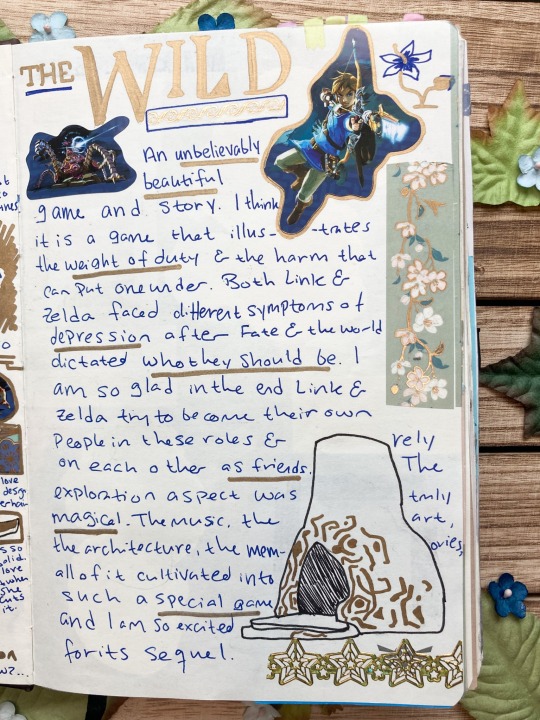 THE WILD
An unbelievably
beautiful
game and story. I think
it is a game that illus- -trates
the weight of duty & the harm that
can put one under. Both Link &
Zelda faced different symptoms of
depression after Fate & the world
dictated who they should be. I
am so glad in the end Link &
Zelda try to become their own
People in these roles & rely
on each other as friends. The
exploration aspect was truly
magical. The music, the art,
the architecture, the mem- ories,
all of it cultivated into
such a special game
and I am so excited
for its sequel.
love
desgn
solid.
love
when
she
cuts
it.